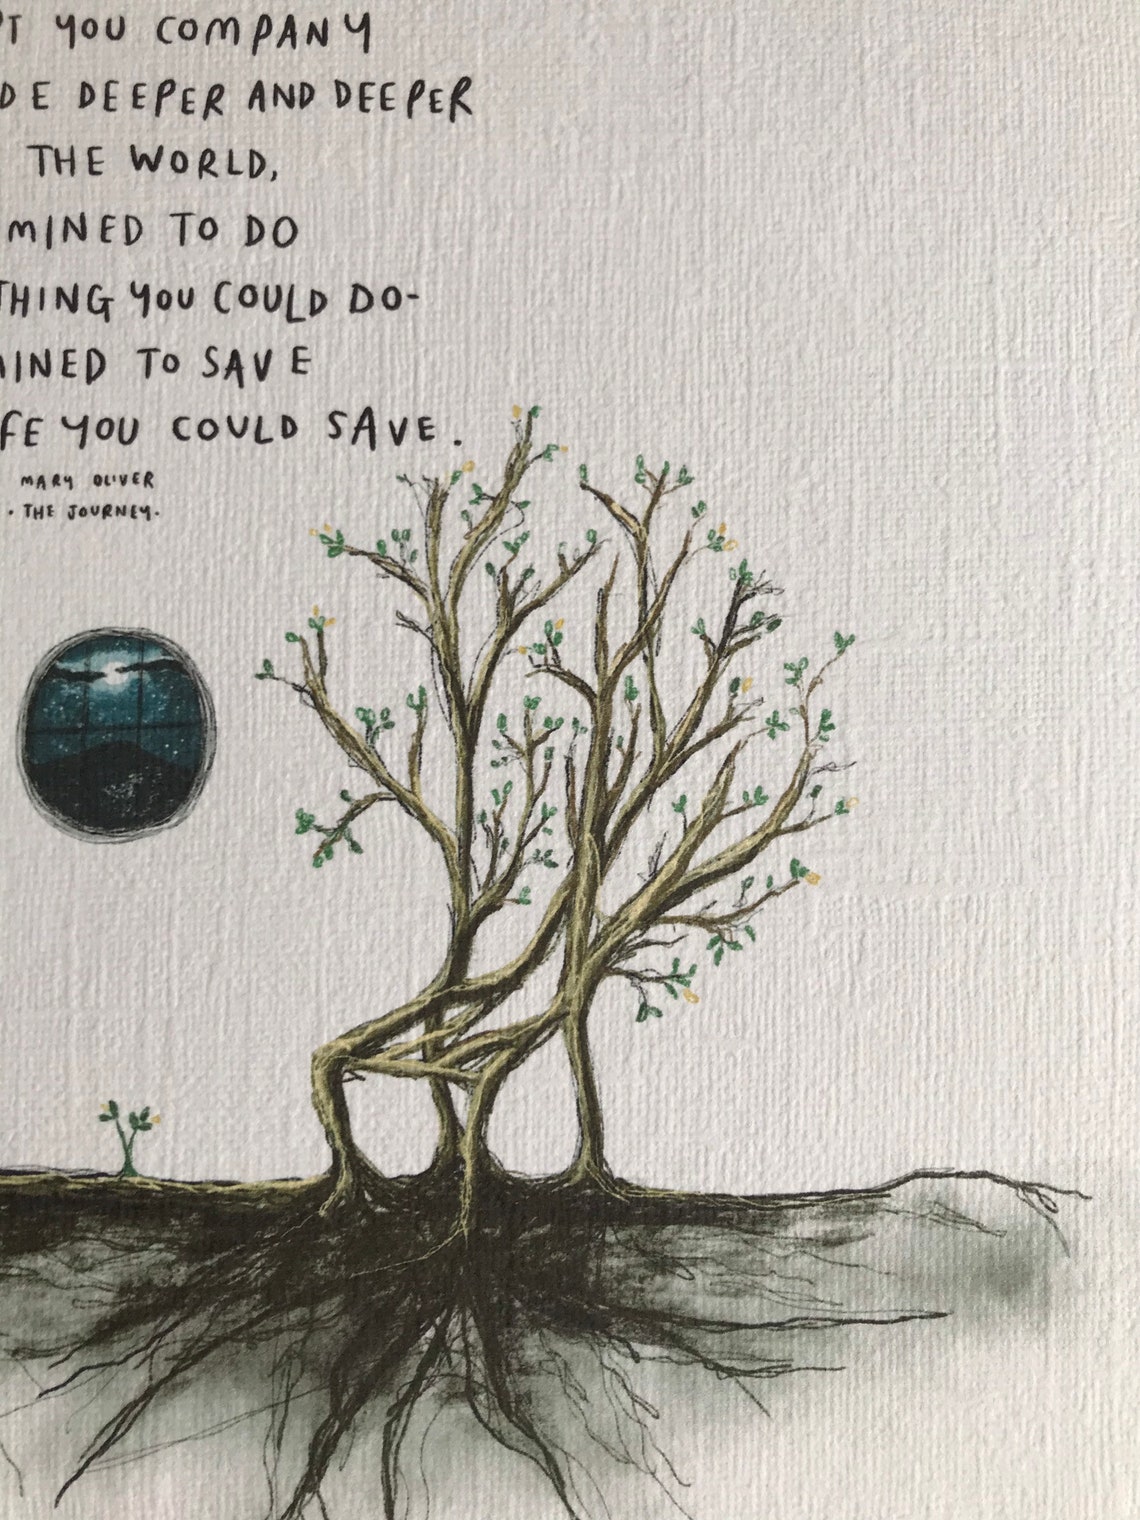 PT YOU COMPANY
DE DEEPER AND DEEPER
THE WORLD,
MINED TO DO
THING YOU COULD DO-
MINED TO SAVE
FE YOU COULD SAVE.
MARY OLIVER
· THE JOURNEY·